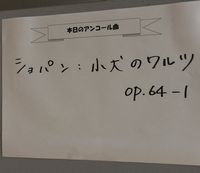 本日のアンコール曲
ショパン：小犬のワルツ
op.64-1